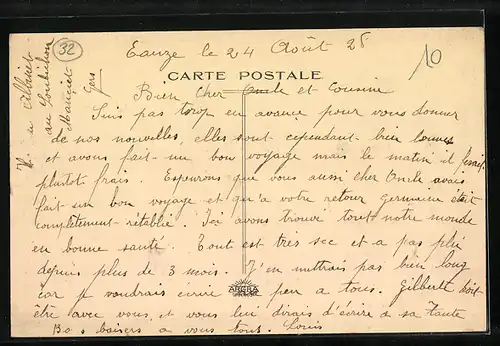 Eauze le 24 Août 28
32
10
CARTE POSTALE
Bien cher Oncle et Cousine
Suis pas trop en avance pour vous donner
de nos nouvelles, elles sont cependant bien bonnes
et avons fait un bon voyage mais le matin il faisait
plustot frais. Espeurons que vous aussi cher Oncle avais
fait un bon voyage et qu'a votre retour Germaine était
complètement rétablie. Ici avons trouvé tout notre monde
en bonne santé. Tout est très sec et a pas plu
depuis plus de 3 mois. J'en mettrais pas bien long
car je voudrais écrire un peu a tous. Gilberte doit
être avec vous et vous lui dirais d'écrire a sa Tante
Bons baisers a vous tous. Louis
au
Mauciet
Gers